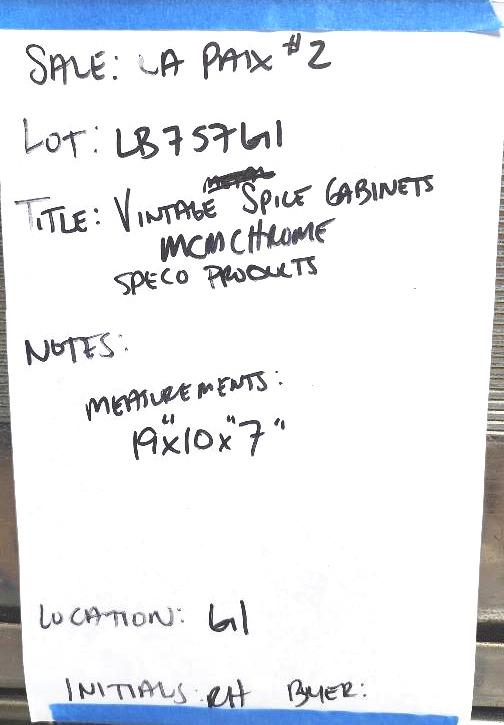 SALE: LA PAIX #2
LOT: LB757G1
TITLE: VINTAGE SPICE CABINETS
MCM CHROME
SPECO PRODUCTS
NOTES:
MEASUREMENTS:
19"x10x"7"
LOCATION: G1
INITIALS: RH BUYER: